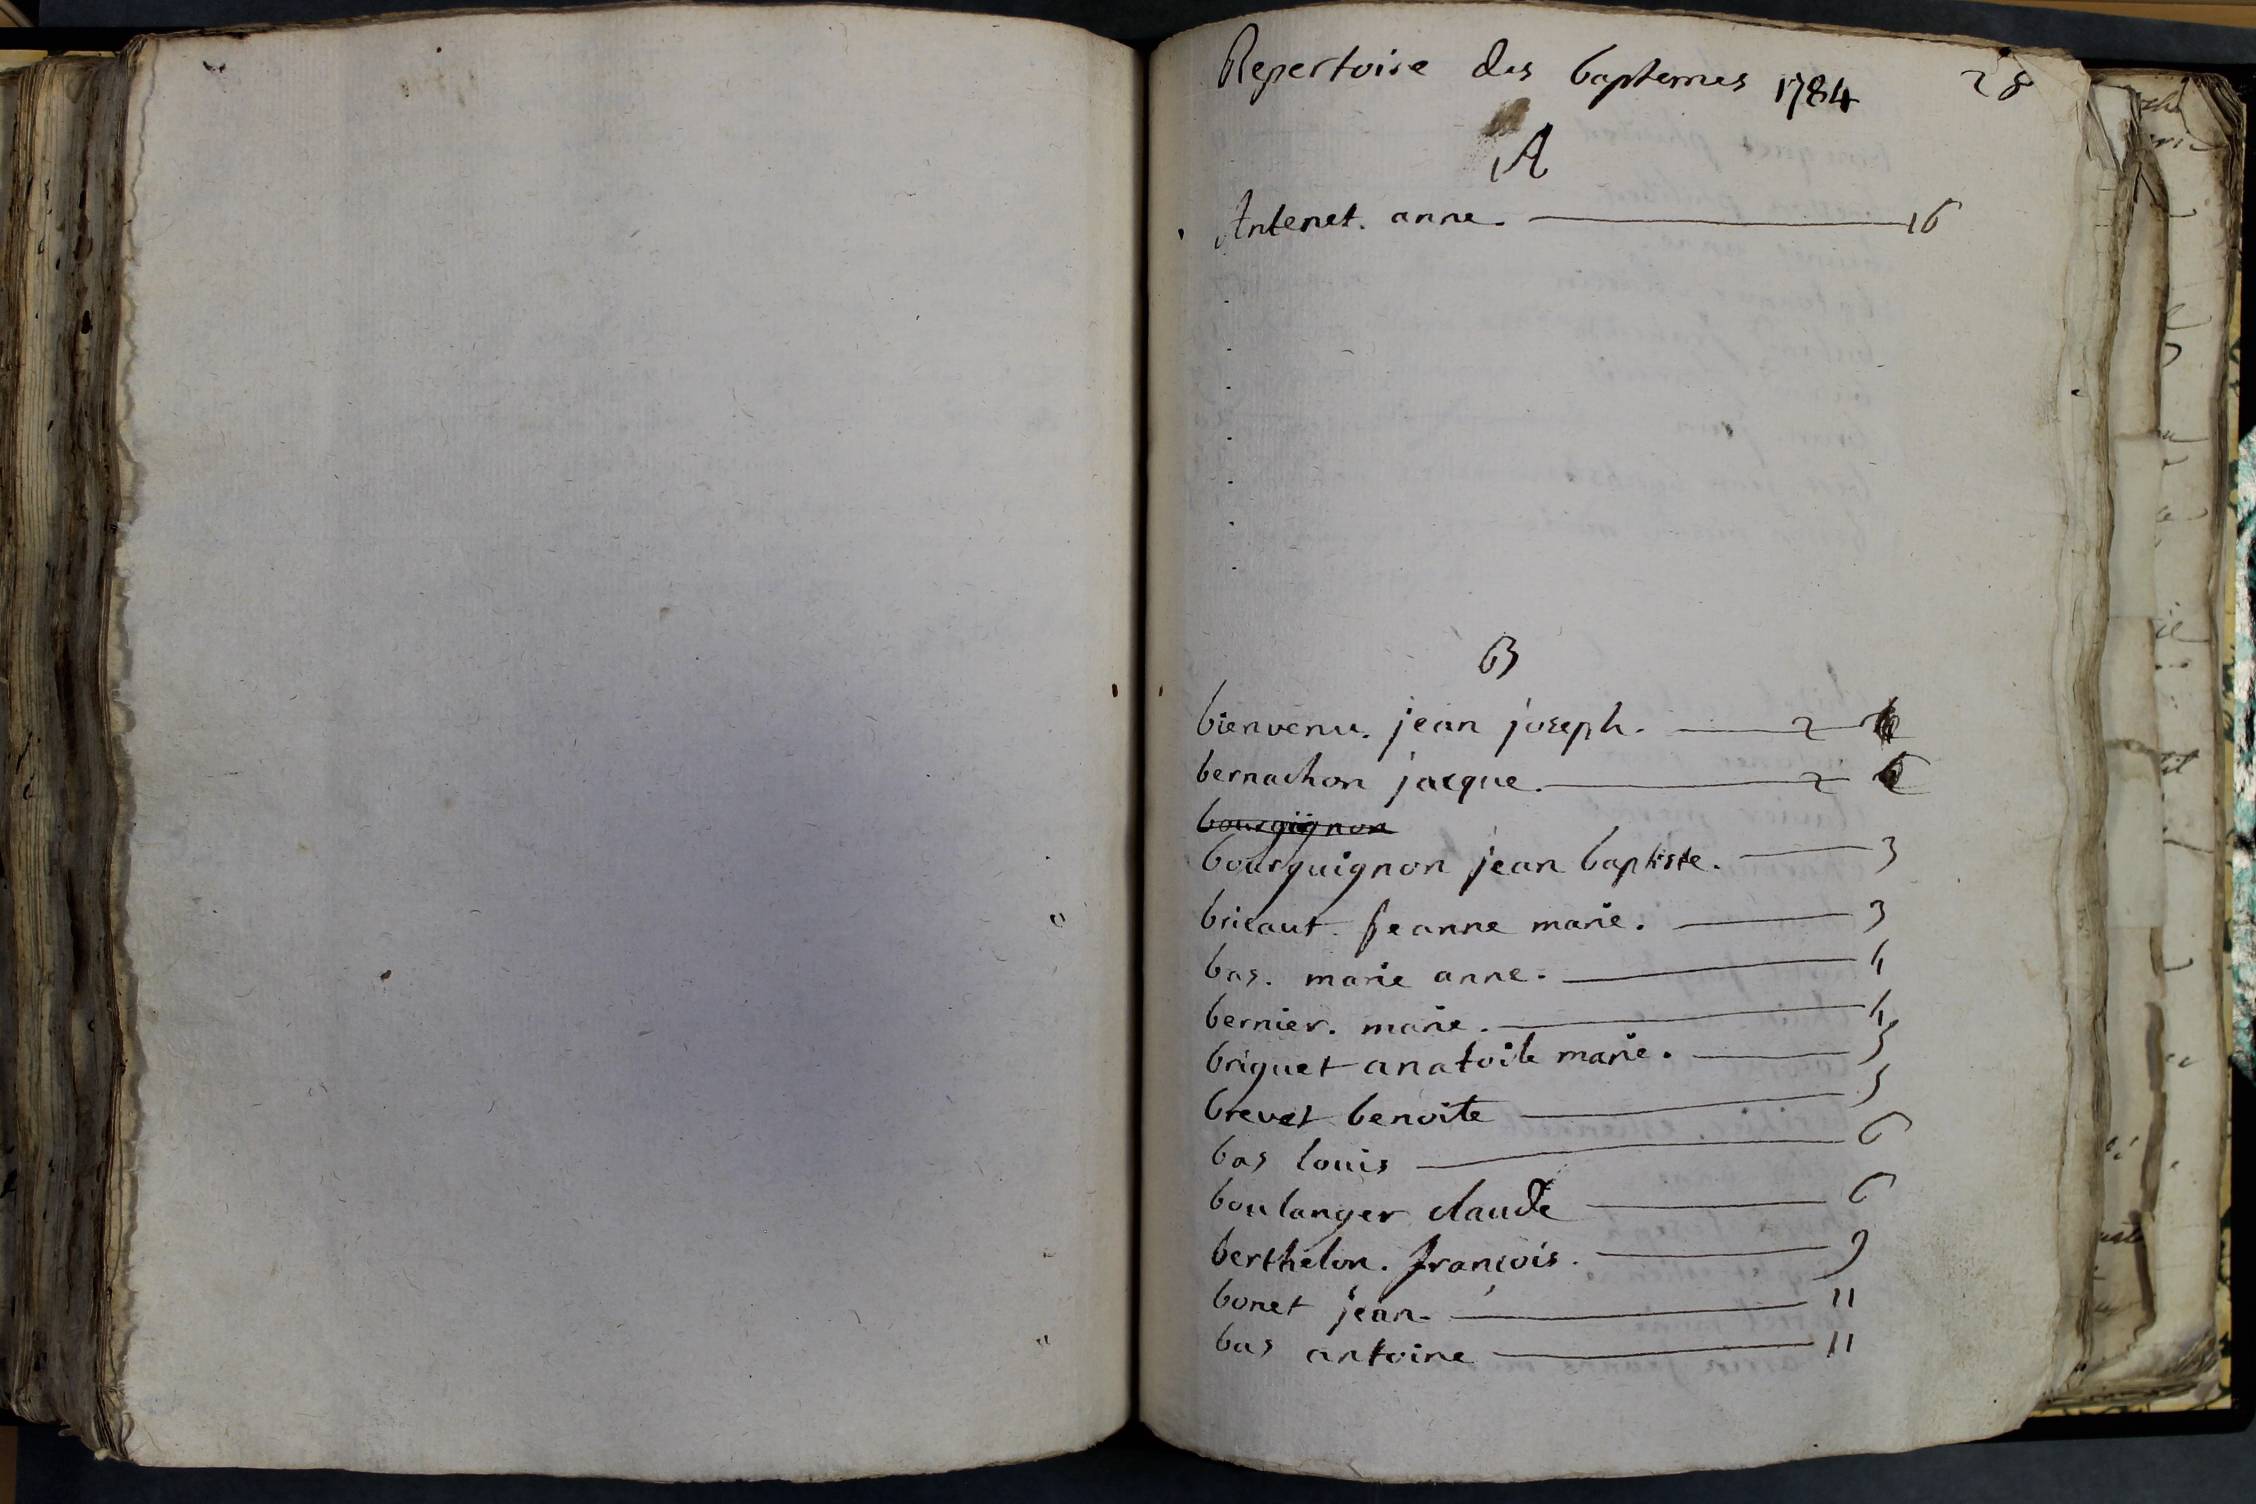 Repertoire des baptemes 1784 28
A
Antenet. anne. 16
B
bienvenu. jean joseph. 2
bernachon jacque. 2
bourgignon
bourguignon jean baptiste. 3
bricaut. Jeanne marie. 3
bas. marie anne. 4
bernier. marie. 4
briquet anatoile marie. 5
brevet benoite 5
bas louis 6
boulanger claude 6
berthelon. francois. 9
bonet jean. 11
bas antoine 11